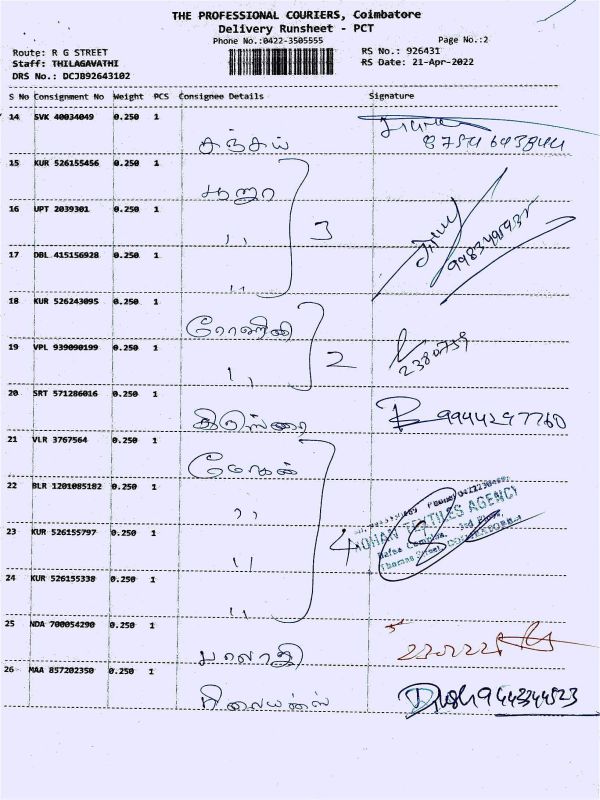 THE PROFESSIONAL COURIERS, Coimbatore
Delivery Runsheet - PCT
Phone No.:0422-3505555 Page No.:2
Route: R G STREET RS No.: 926431
Staff: THILAGAVATHI RS Date: 21-Apr-2022
DRS No.: DCJB92643102
S No Consignment No Weight PCS Consignee Details Signature
14 SVK 40034049 0.250 1
சஞ்சய்
15 KUR 526155456 0.250 1
பூஜா
16 UPT 2039301 0.250 1
,, 3
17 DBL 415156928 0.250 1
,,
18 KUR 526243095 0.250 1
ரோஹிணி
19 VPL 939090199 0.250 1 2380759
,, 2
20 SRT 571286016 0.250 1
9944297760
21 VLR 3767564 0.250 1
மோகன்
22 BLR 1201085182 0.250 1
,,
MOHAN TEXTILES AGENCY
23 KUR 526155797 0.250 1 4
Thomas Street, COIMBATORE-1
,,
24 KUR 526155338 0.250 1
,,
25 NDA 700054290 0.250 1
பாலாஜி
26 MAA 857202350 0.250 1
ரிலையன்ஸ் 9443344523